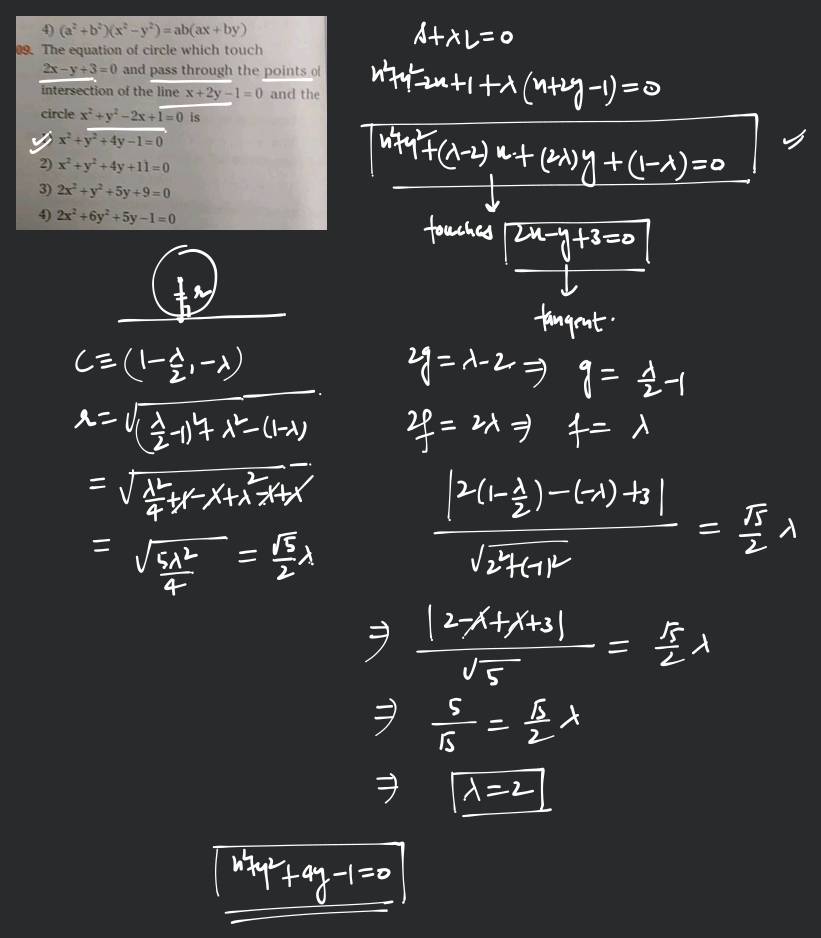 4) (a² + b²)(x² – y²) = ab(ax + by)
09. The equation of circle which touch
2x – y + 3 = 0 and pass through the points of
intersection of the line x + 2y – 1 = 0 and the
circle x² + y² – 2x + 1 = 0 is
x² + y² + 4y – 1 = 0
2) x² + y² + 4y + 11 = 0
3) 2x² + y² + 5y + 9 = 0
4) 2x² + 6y² + 5y – 1 = 0
S + λL = 0
x² + y² - 2x + 1 + λ(x + 2y - 1) = 0
x² + y² + (λ - 2)x + (2λ)y + (1 - λ) = 0
touches 2x - y + 3 = 0
tangent.
r
C ≡ (1 - λ/2, -λ)
r = √((λ/2 - 1)² + λ² - (1 - λ))
= √(λ²/4 + 1 - λ + λ² - 1 + λ)
= √(5λ²/4) = √5/2 λ
2g = λ - 2 ⇒ g = λ/2 - 1
2f = 2λ ⇒ f = λ
|2(1 - λ/2) - (-λ) + 3| / √(2² + (-1)²) = √5/2 λ
⇒ |2 - λ + λ + 3| / √5 = √5/2 λ
⇒ 5/√5 = √5/2 λ
⇒ λ = 2
x² + y² + 4y - 1 = 0